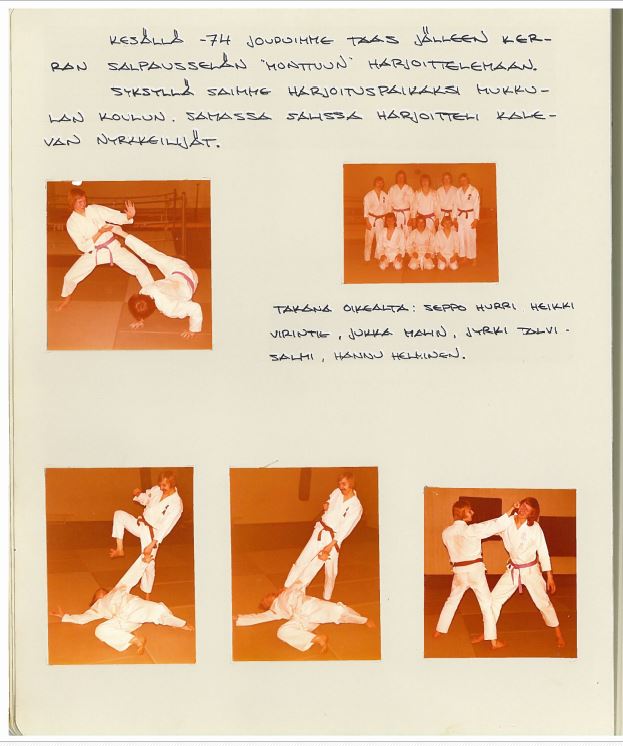 KESÄLLÄ -74 JOUDUIMME TAAS JÄLLEEN KER-
RAN SALPAUSSELÄN "MONTTUUN" HARJOITTELEMAAN.
SYKSYLLÄ SAIMME HARJOITUSPAIKAKSI MUKKU-
LAN KOULUN. SAMASSA SALISSA HARJOITTELI KALE-
VAN NYRKKEILIJÄT.
TAKANA OIKEALTA: SEPPO HURRI HEIKKI
VIRINTIE, JUKKA MALIN, JYRKI TALVI-
SALMI, HANNU HELMINEN.